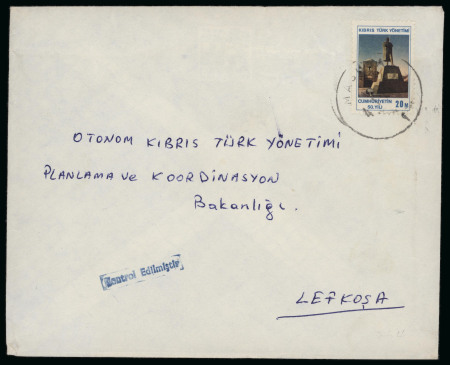 KIBRIS TÜRK YÖNETİMİ
CUMHURİYETİN
50. YILI
20 M
OTONOM KIBRIS TÜRK YÖNETİMİ
PLANLAMA ve KOORDİNASYON
Bakanlığı.
Kontrol Edilmiştir
LEFKOŞA